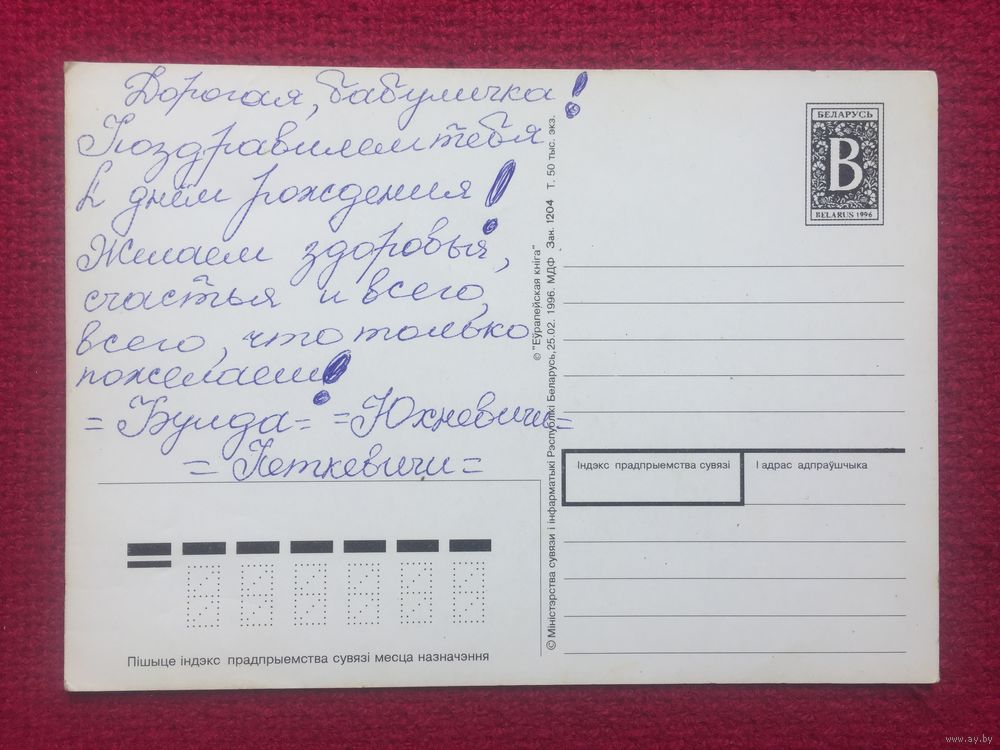 Дорогая, бабуличка!
Поздравляем тебя
С днём рождения!
Желаем здоровья,
счастья и всего,
всего, что только
пожелаеш!
=Булда= =Юхневичи=
=Петкевичи=
Пішыце індэкс прадпрыемства сувязі месца назначэння
© "Еўрапейская кніга"
© Міністэрства сувязи і інфарматыкі Рэспублікі Беларусь, 25.02. 1996. МДФ Зак. 1204 Т. 50 тыс. экз.
БЕЛАРУСЬ
B
BELARUS 1996
Індэкс прадпрыемства сувязі
І адрас адпраўшчыка
www.ay.by